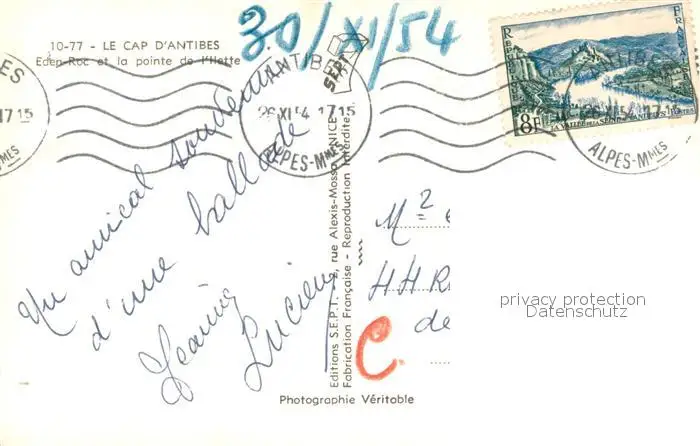 10-77 - LE CAP D'ANTIBES
Eden-Roc et la pointe de l'Ilette
30/XI/54
ANTIBES
26 XI 54 17 15
ALPES-MMES
SEPT
REPUBLIQUE FRANÇAISE
8F
LA VALLÉE DE LA SEINE AUX ANDELYS
ANTIBES
26 XI 54 17 15
ALPES-MMES
ES
17 15
MES
Un amical souvenir
d'une ballade
Jeanine
Lucien
Editions S.E.P.T., rue Alexis-Mossa, NICE
Fabrication Française - Reproduction Interdite
M
HHR
de
C.
privacy protection
Datenschutz
Photographie Véritable